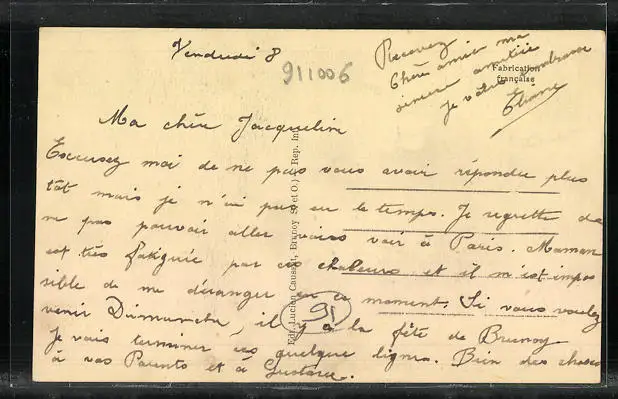 Vendredi 8
911006
Recevez
Chère amie ma
sincère amitié
Je vous embrasse
Eliane
Fabrication
française
Ma chère Jacqueline
Excusez moi de ne pas vous avoir répondu plus
tôt mais je n'ai pas eu le temps. Je regrette de
ne pas pouvoir aller vous voir à Paris. Maman
est très fatiguée par ces chaleurs et il m'est impos
sible de me déranger en ce moment. Si vous voulez
venir Dimanche, il y a la fête de Brunoy
Je vais terminer ces quelques lignes. Bien des choses
à vos Parents et à Gustave.
91
Edit. Lucien Caussat, Brunoy (S.et O.) Rep. Int